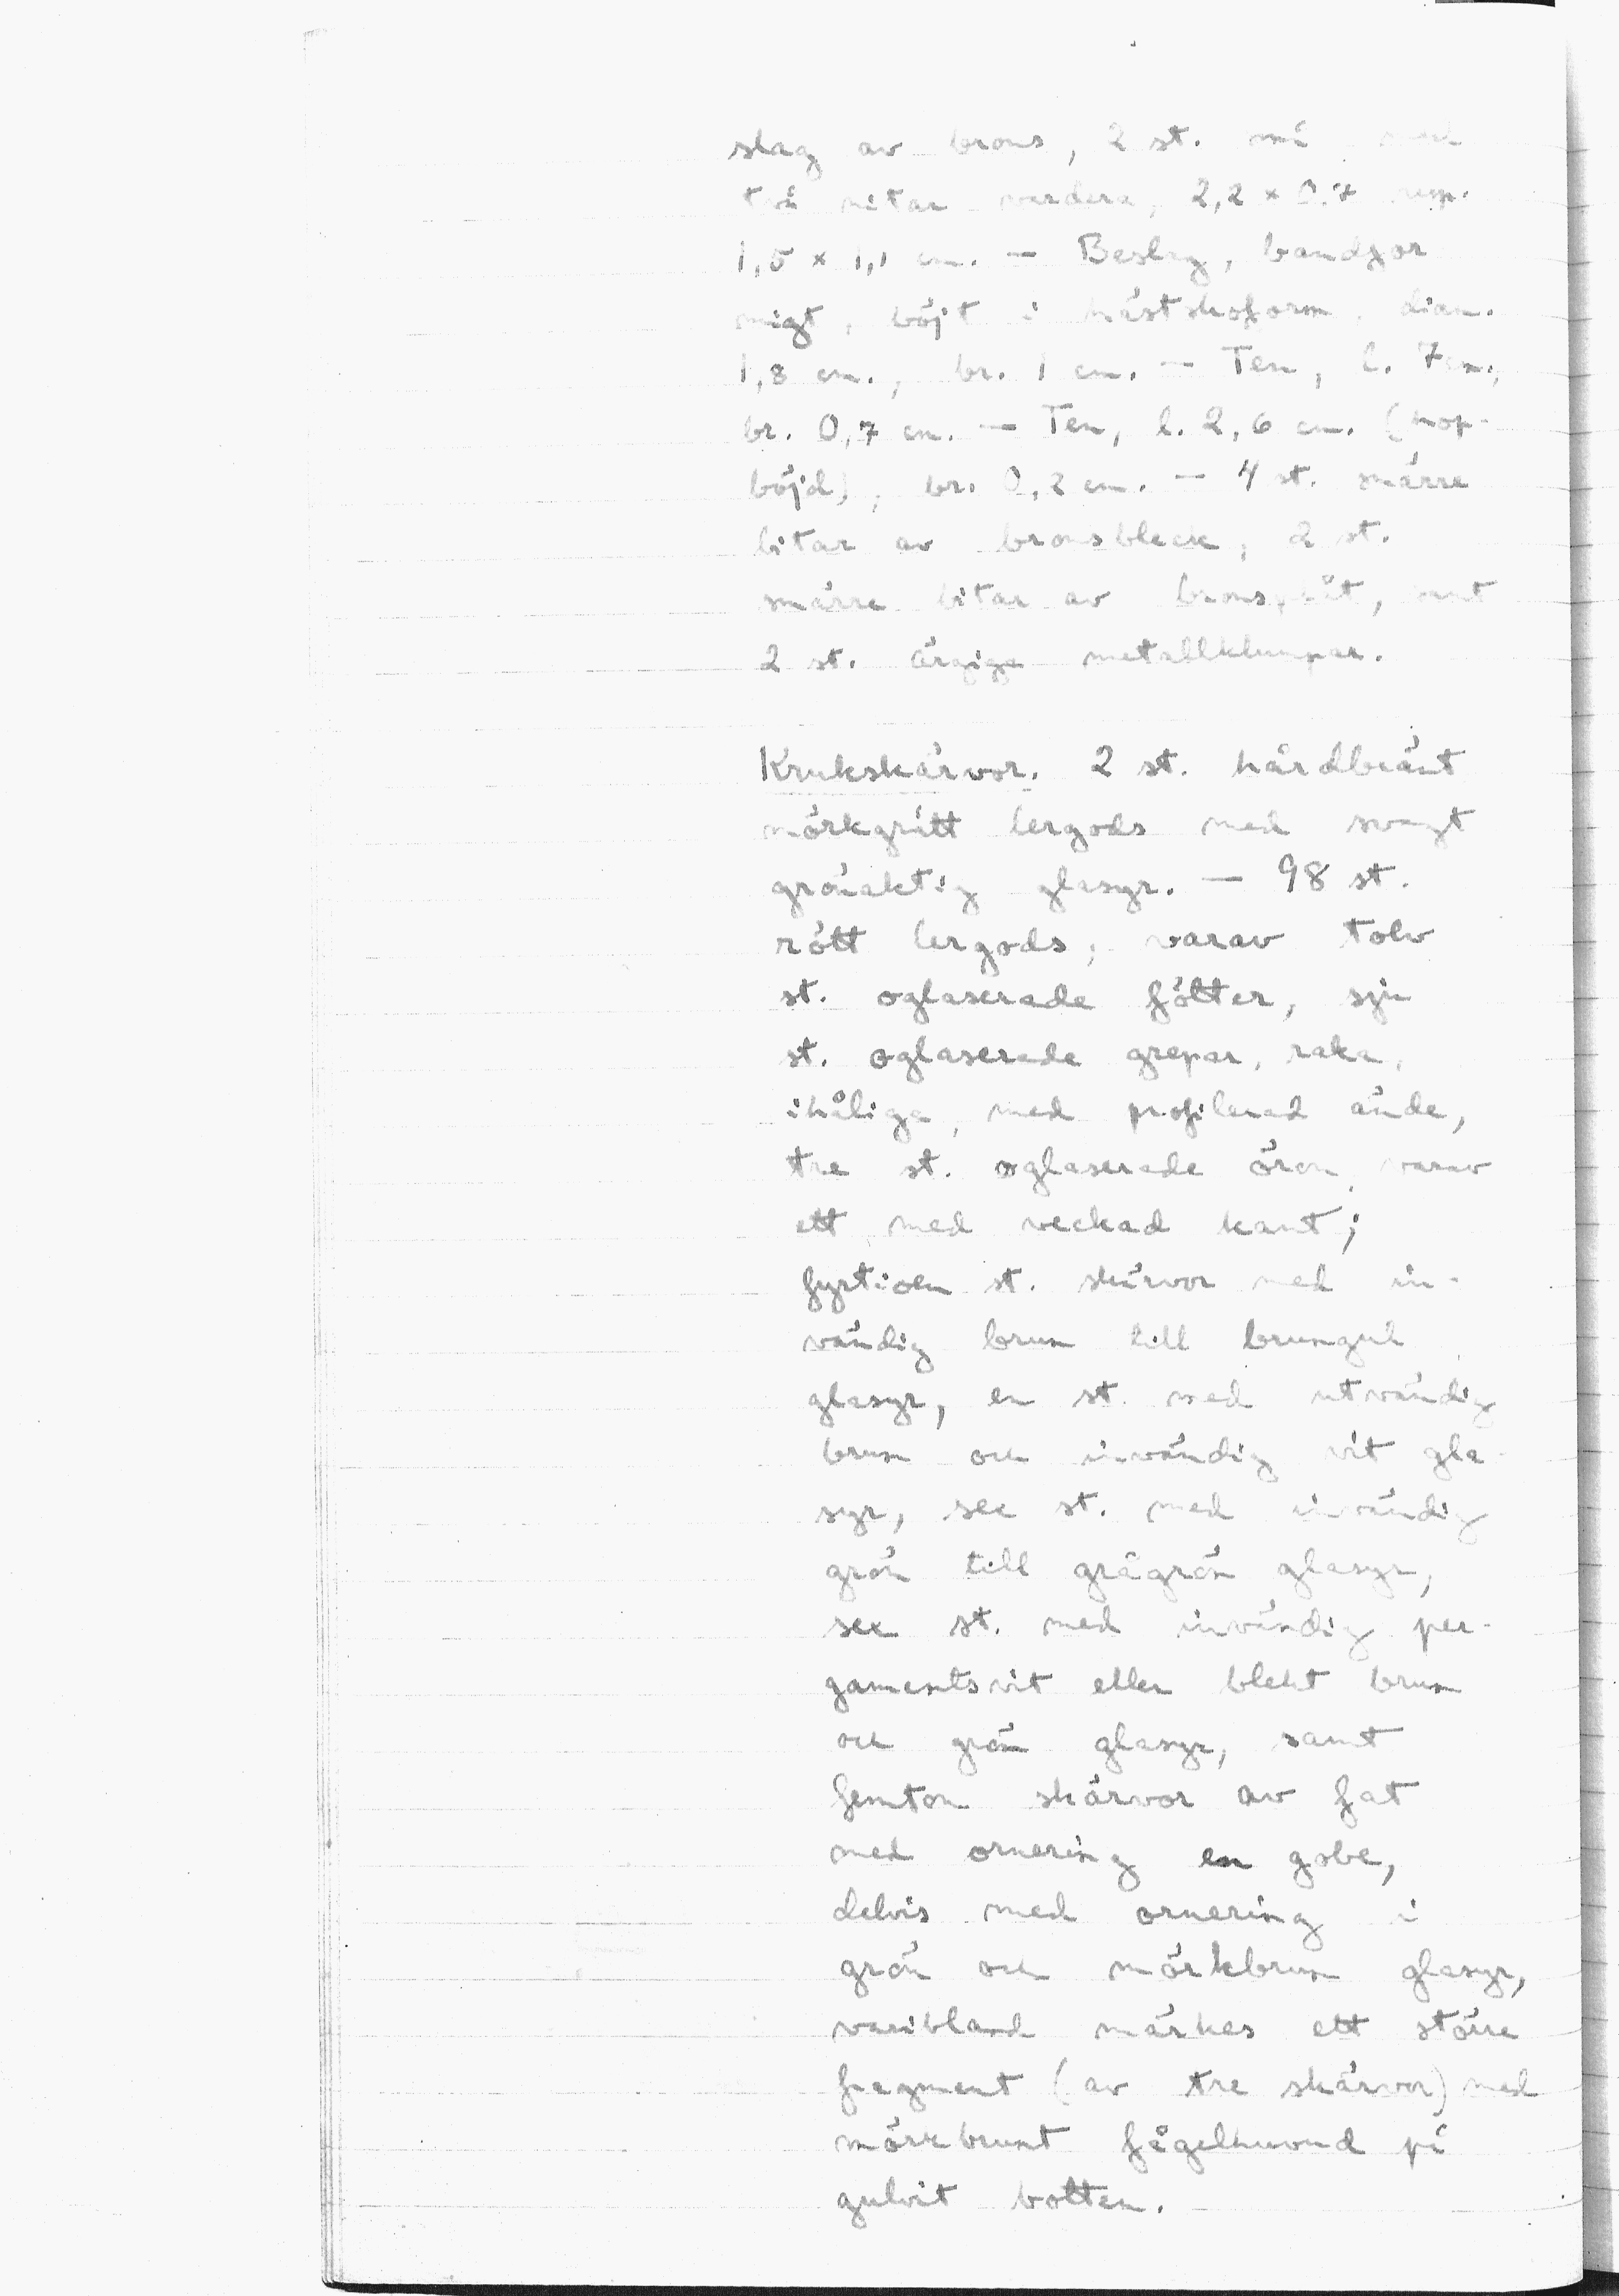 slag av brons, 2 st. små med
två nitar vardera, 2,2 × 0.7 resp.
1,5 × 1,1 cm. — Beslag, bandfor
migt, böjt i hästskoform, diam.
1,8 cm., br. 1 cm. — Ten, l. 7 cm.,
br. 0,7 cm. — Ten, l. 2,6 cm. (hop-
böjd), br. 0,2 cm. — 4 st. smärre
bitar av bronsbleck, 2 st.
smärre bitar av bronsplåt, samt
2 st. ärgiga metallklumpar.
Krukskärvor. 2 st. hårdbränt
mörkgrått lergods med svagt
grönaktig glasyr. — 98 st.
rött lergods, varav tolv
st. oglaserade fötter, sju
st. oglaserade grepar, raka,
ihåliga, med profilerad ände,
tre st. oglaserade öron, varav
ett med veckad kant;
fyrtioen st. skärvor med in-
vändig brun till brungul
glasyr, en st. med utvändig
brun och invändig vit gla-
syr, sex st. med invändig
grön till grågrön glasyr,
sex st. med invändig per-
gamentsvit eller blekt brun
och grön glasyr, samt
femton skärvor av fat
med ornering en gobe,
delvis med ornering i
grön och mörkbrun glasyr,
varibland märkes ett större
fragment (av tre skärvor) med
mörkbrunt fågelhuvud på
gulvit botten.